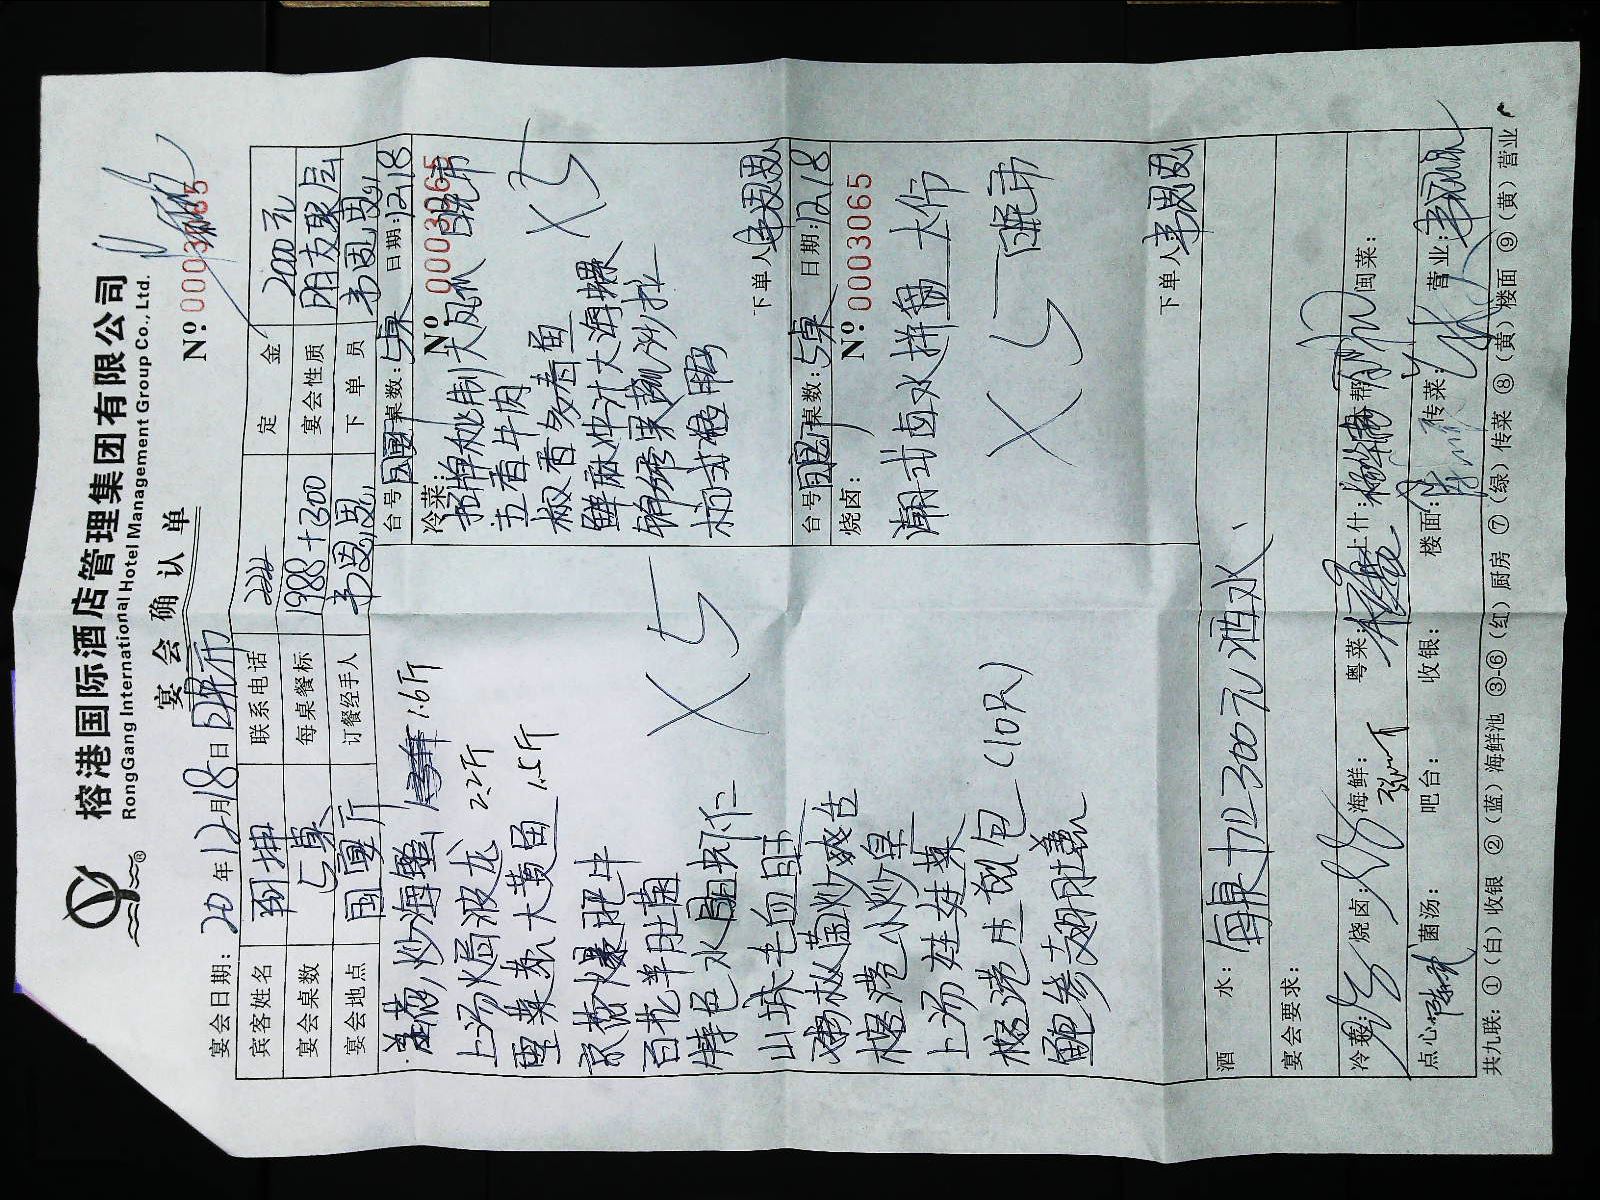 榕港国际酒店管理集团有限公司
RongGang International Hotel Management Group Co., Ltd.
宴会确认单
№ 0003065
宴会日期: 20年12月18日晚市
宾客姓名 联系电话 定金 2000元
宴会桌数 5桌 每桌餐标 1988+300 宴会性质 朋友聚会
宴会地点 国宴厅 订餐经手人 韦凤凤 下单员 韦凤凤
1.6斤
上汤焗波龙 2.2斤
雪菜蒸大黄鱼 1.5斤
京葱爆肥牛
百花羊肚菌
特色水晶虾仁
山城毛血旺
榕港小炒皇
上汤娃娃菜
榕港生煎包 (10只)
鲍参翅肚羹
X 5
台号 国宴厅 桌数: 5桌 日期: 12.18
冷菜: № 0003065 晚市
招牌秘制大瓦风
五香牛肉
椒香多春鱼
鲜麻汁大海螺
锦绣果蔬沙拉
X 5
下单人 韦凤凤
台号 国宴厅 桌数: 5桌 日期: 12.18
烧卤: № 0003065
潮式卤水拼盘 大份
晚市
X 5
下单人 韦凤凤
酒水: 每桌加300元酒水、
宴会要求:
冷菜: 烧卤: 海鲜: 粤菜: 上什: 闽菜:
点心 菌汤: 吧台: 收银: 楼面: 传菜: 营业:
共九联: ①(白)收银 ②(蓝)海鲜池 ③-⑥(红)厨房 ⑦(绿)传菜 ⑧(黄)楼面 ⑨(黄)营业